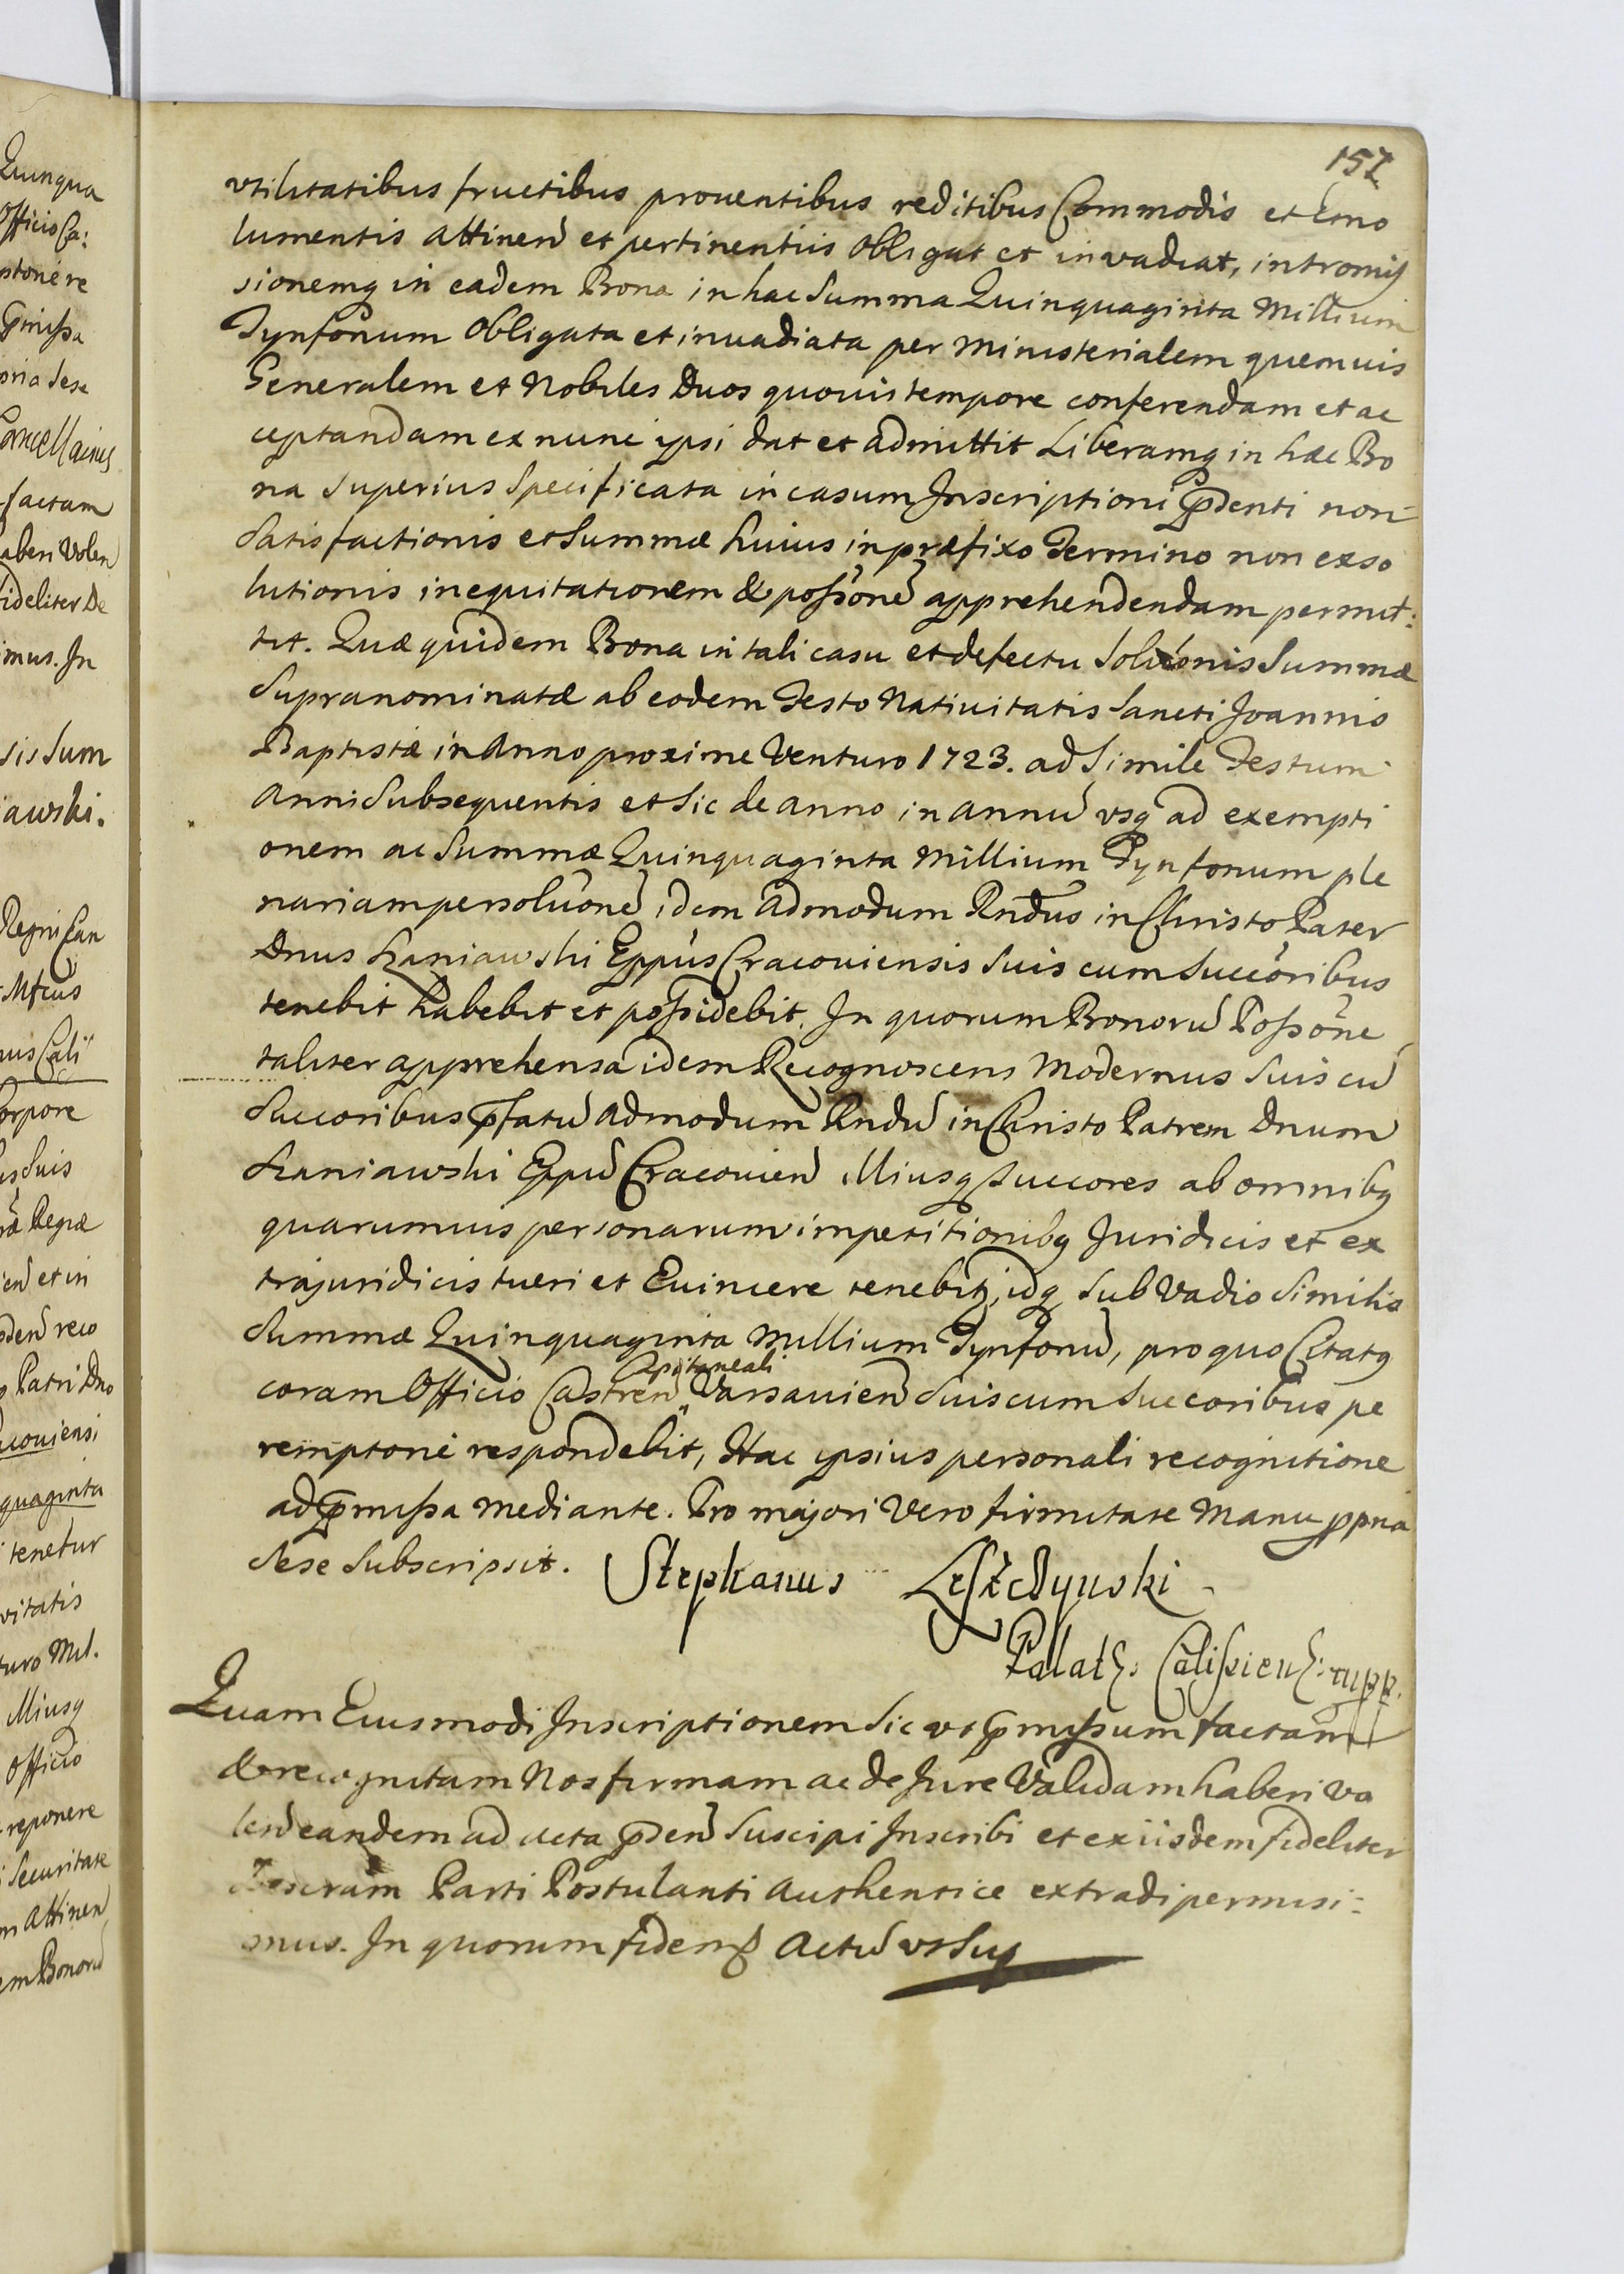 157
utilitatibus fructibus prouentibus reditibus Commodis et Emo
lumentis Attineñ et pertinentiis Obligat et invadiat, intromis
sionemq in eadem Bona in hac Summa Quinquaginta Millium
Tynfonum Obligata et inuadiata per Ministerialem quemuis
Generalem et Nobiles Duos quouis tempore conferendam et ac
ceptandam ex nunc ipsi dat et admittit Liberamq in hæc Bo
na Superius Specificata in casum Inscriptioni p̃denti non
Satisfactionis et Summæ huius in præfixo Termino non exso
lutionis inequitationem & poſsõne͂ apprehendendam permit:
tit. Quæ quidem Bona in tali casu et defectu Solũonis Summæ
Supranominatæ ab eodem Festo Natiuitatis Sancti Joannis
Baptistæ in Anno proxime Venturo 1723. ad Simile Festum
Anni Subsequentis et Sic de Anno in Annũ usq ad exempti
onem ac Summæ Quinquaginta Millium Tynfonum ple
nariam persolũone͂ idem Admodum Rnd̃us in Christo Pater
Dnus Szaniawski Epp̃us Cracouiensis Suis cum Succoribus
tenebit habebit et poſsidebit. In quorum Bonorũ Poſsõne
taliter apprehensa idem Recognoscens Modernus Suis cũ
Succoribus p̃fatũ Admodum Rndũ in Christo Patrem Dnum
Szaniawski Eppũ Cracouień Illiusq Succores ab omnibq
quarumuis personarum impetitionibq Juridicis et ex
trajuridicis tueri et Euincere tenebitq, idq Sub Vadio Similis
Summæ Quinquaginta Millium Tynfonũ, pro quo Citatq
Capitaneali
coram Officio Castreñ Varsauień Suis cum Succoribus pe
remptorie respondebit, Hac ipsius personali recognitione
ad p̃miſsa mediante. Pro majori Vero firmitate Manu ppria
Sese Subscripsit. Stephanus Leſzczynski
Palatq: Caliſsienq: mpp.
Quam Eiusmodi Inscriptionem Sic ut p̃miſsum factam
& recognitam Nos firmam ac de Jure Validam haberi vo
leñ eandem ad Acta p̃deñ Suscipi Inscribi et ex iisdem fideliter
Parti Postulanti Authentice extradi permisi:
mus. In quorum fidem Actũ ut Suq